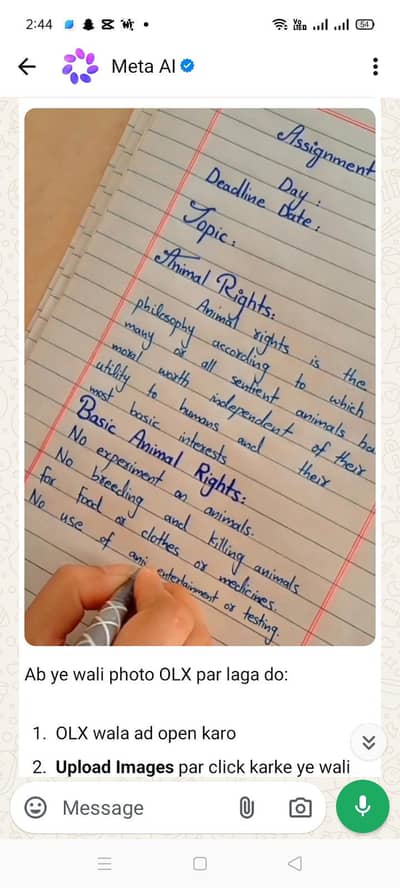 2:44
54
Meta AI
Assignment
Day :
Deadline Date :
Topic :
Animal Rights:
Animal rights is the
philosophy according to which
many or all sentient animals ha
moral worth independent of their
utility to humans and their
most basic interests
Basic Animal Rights:
No experiment on animals.
No breeding and killing animals
for food or clothes or medicines.
No use of ani entertainment or testing.
Ab ye wali photo OLX par laga do:
1. OLX wala ad open karo
2. Upload Images par click karke ye wali
Message